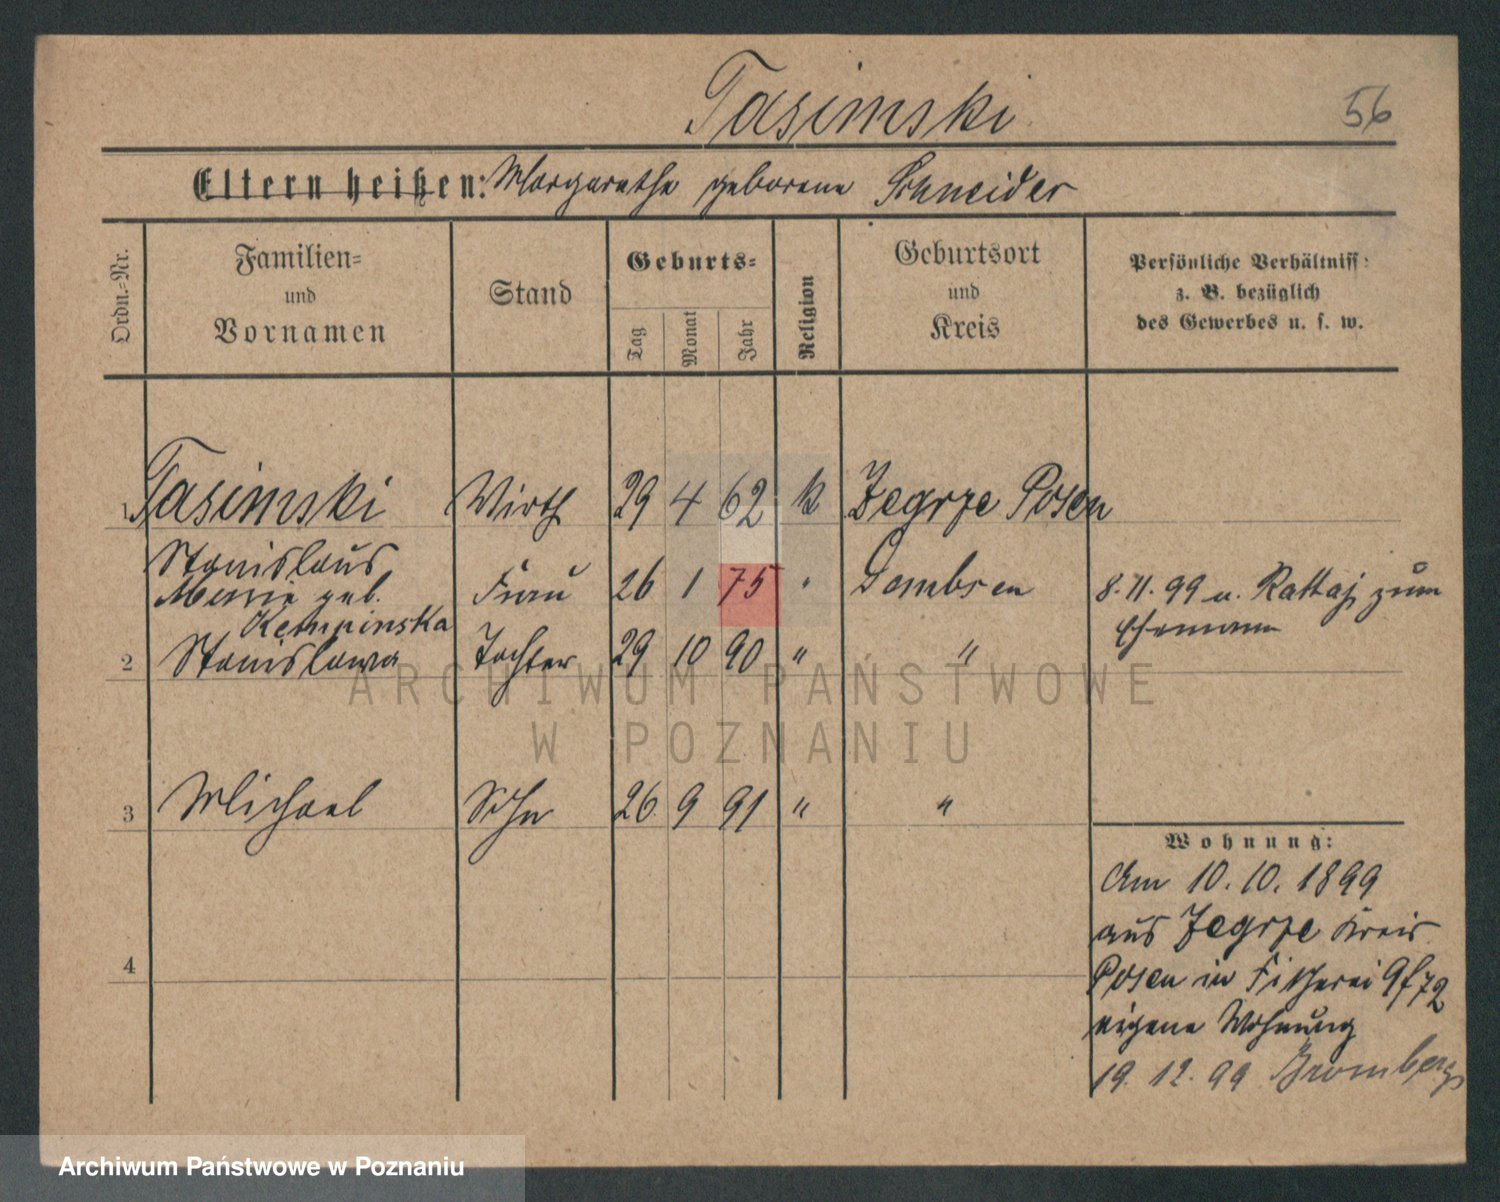 Tasimski
56
Eltern heißen: Margarethe geborene Schneider
Ordn.-Nr.
Familien-
und
Vornamen
Stand
Geburts-
Tag
Monat
Jahr
Religion
Geburtsort
und
Kreis
Persönliche Verhältniss:
z. B. bezüglich
des Gewerbes u. s. w.
1 Tasimski Wirth 29 4 62 k Zegrze Posen
Stanislaus
Marie geb. Frau 26 1 75 " 8.11.99 v. Rattaj zum
Kempinska Ehemann
2 Stanislawa Tochter 29 10 90 " "
ARCHIWUM PAŃSTWOWE
W POZNANIU
3 Michael Sohn 26 9 91 " "
4
Wohnung:
Am 10.10.1899
aus Zegrze Kreis
Posen in Fischerei
eigene Wohnung
19.12.99 Bromberg
Archiwum Państwowe w Poznaniu